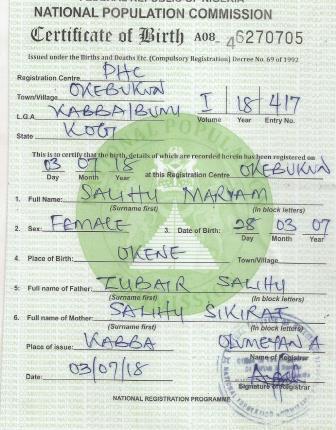 FEDERAL REPUBLIC OF NIGERIA
NATIONAL POPULATION COMMISSION
Certificate of Birth A08- 46270705
Issued under the Births and Deaths Etc. (Compulsory Registration) Decree No. 69 of 1992
Registration Centre PHC
Town/Village OKEBUKUN
L.G.A. KABBA/BUNU I 18 417
Volume Year Entry No.
State KOGI
This is to certify that the birth, details of which are recorded herein has been registered on
03 07 18 at this Registration Centre OKEBUKUN
Day Month Year
1. Full Name: SALIHU MARYAM
(Surname first) (In block letters)
2. Sex: FEMALE 3. Date of Birth: 28 03 07
Day Month Year
4. Place of Birth: OKENE Town/Village
5. Full name of Father: ZUBAIR SALIHU
(Surname first) (In block letters)
6. Full name of Mother: SALIHU SIKIRAT
(Surname first) (In block letters)
Place of issue: KABBA OLUMEYAN A
Name of Registrar
Date: 03/07/18
Signature of Registrar
NATIONAL REGISTRATION PROGRAMME